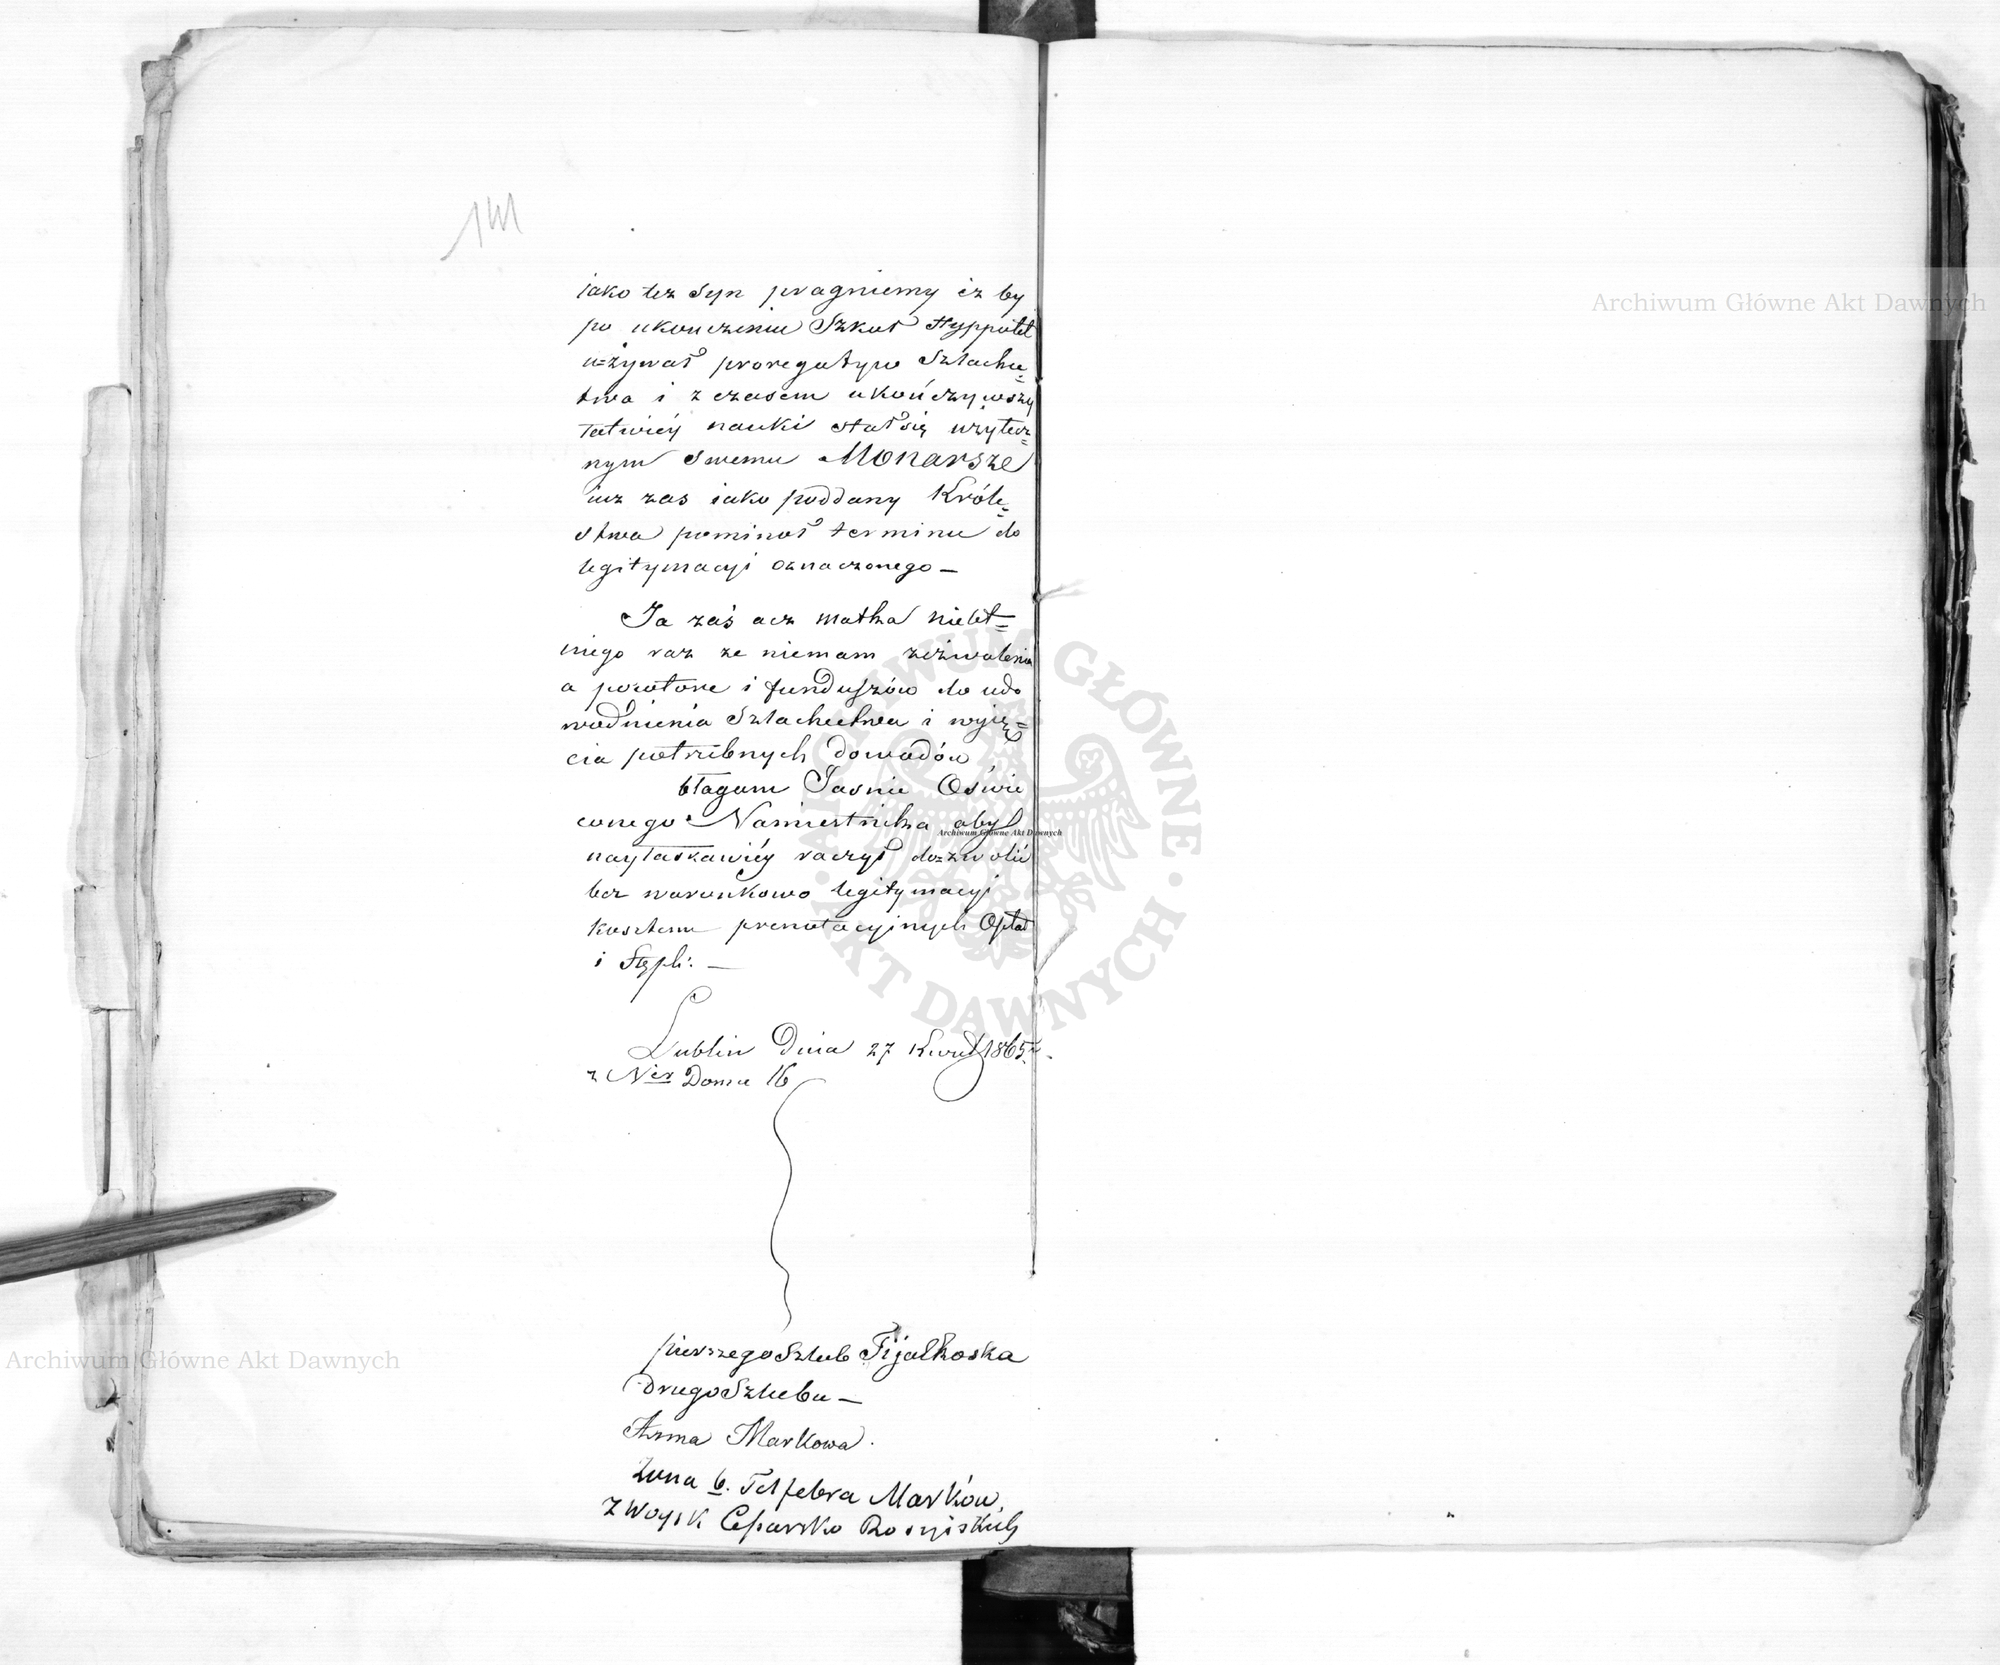 141
iako też Syn pragniemy iż by
po ukończeniu Szkuł Hyppolit
używał prorogatyw Szlache=
twa i z czasem ukończywszy
łatwiéy nauki stał się użytecz=
nym swemu Monarsze
iuż zas iako poddany Króle=
stwa pominoł terminu do
legitymacyi oznaczonego —
Ja zaś acz matka nielet=
niego raz że niemam zeźwolenia
a powtore i funduszów do udo
wodnienia Szlachectwa i wyię=
cia potrzebnych dowodów
błagam Jasnie Oświe
conego Namiestnika abyś
nayłaskawiéy raczył dozwolić
bez warunkowo legitymacyi
kosztem prenotacyinych Opłat
i Stępli: —
Lublin Dnia 27 Kwiet 1865 r.
z Ner Domu 16
pierszego Szlub Fijałkoska
Drugo Szlubu —
Anna Markowa.
Żona b. Felfebra Marków,
z Woysk Cesarsko Rosyiskich
Archiwum Główne Akt Dawnych
Archiwum Główne Akt Dawnych
Archiwum Główne Akt Dawnych
ARCHIWUM GŁÓWNE · AKT DAWNYCH ·